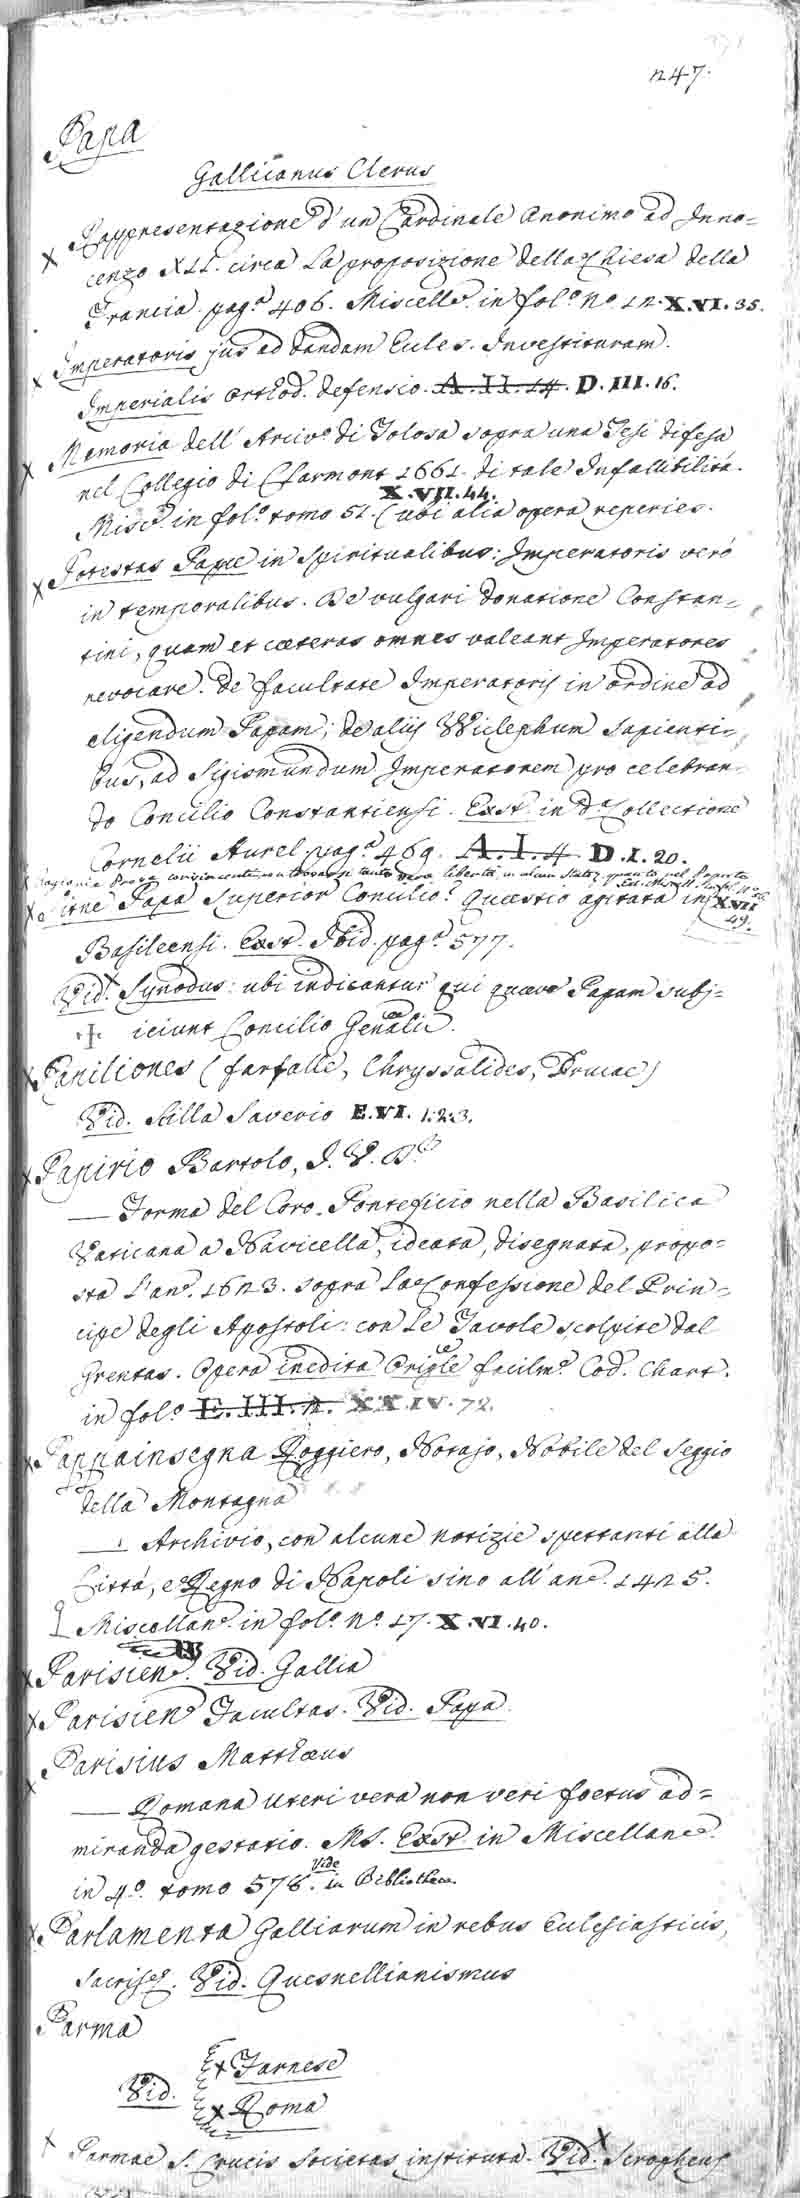 247.
Papa
Gallicanus Clerus
Rappresentazione d'un Cardinale Anonimo ad Inno=
cenzo XII. circa la proposizione della Chiesa della
Francia. pagª 406. Miscellº in folº Nº 12. X.VI.35.
Imperatoris jus ad dandam Eccles. Investituram.
Imperialis Orthod. defensio. A.II.14. D.III.16.
Memoria dell' Arcivº di Tolosa sopra una Tesi difesa
nel Collegio di Clarmont 1661. di tale Infallibilità.
X.VII.44.
Miscº in folº tomo 51. (ubi alia opera reperies.
Potestas Papae in spiritualibus: Imperatoris verò
in temporalibus. De vulgari donatione Constan=
tini, quam et caeteras omnes valeant Imperatores
revocare. De facultate Imperatoris in ordine ad
eligendum Papam; de aliis Wiclephum sapienti=
bus, ad Sigismundum Imperatorem pro celebran=
do Concilio Constantiensi. Exst. in dª Collectione
Cornelii Aurel. pagª 469. A.I.4 D.I.20.
vera libertà, in alcun Stato, quanto nel
Sitne Papa Superior Concilio? Quaestio agitata in X.VII
49.
Basileensi. Exst. Ibid. pagª 577.
Vid. Synodus: ubi indicantur qui quave Papam subj=
iciunt Concilio Gen̄ali.
Papiliones (farfalle, Chryssalides, Erucae)
Vid. Stilla Saverio E.VI. 1.2.3.
Papirio Bartolo, I. V. Dʳ
— Forma del Coro Pontificio nella Basilica
Vaticana a Navicella, ideata, disegnata, propo=
sta l'anº 1623. sopra la Confessione del Prin=
cipe degli Apostoli: con le Tavole scolpite dal
Grentas. Opera inedita Origˡᵉ facilmᵉ Cod. Chart.
in folº E.III.2. XXIV.72.
Pappainsegna Roggiero, Notajo, Nobile del Seggio
della Montagna
— Archivio, con alcune notizie spettanti alla
Città, e Regno di Napoli sino all'anº 1425.
Miscellanº in folº Nº 17. X.VI.40.
Parisienº Vid. Gallia
Parisienº Facultas. Vid. Papa
Parisius Matthaeus
— Romana Uteri vera non veri foetus ad=
miranda gestatio. MS. Exst in Miscellanº
in 4º tomo 578. Vide in Bibliothec.
Parlamenta Galliarum in rebus Eulesiasticis,
Vid. Quesnellianismus
Parma
Vid. Farnese
Roma
Parmae S. Crucis Societas instituta. Vid.